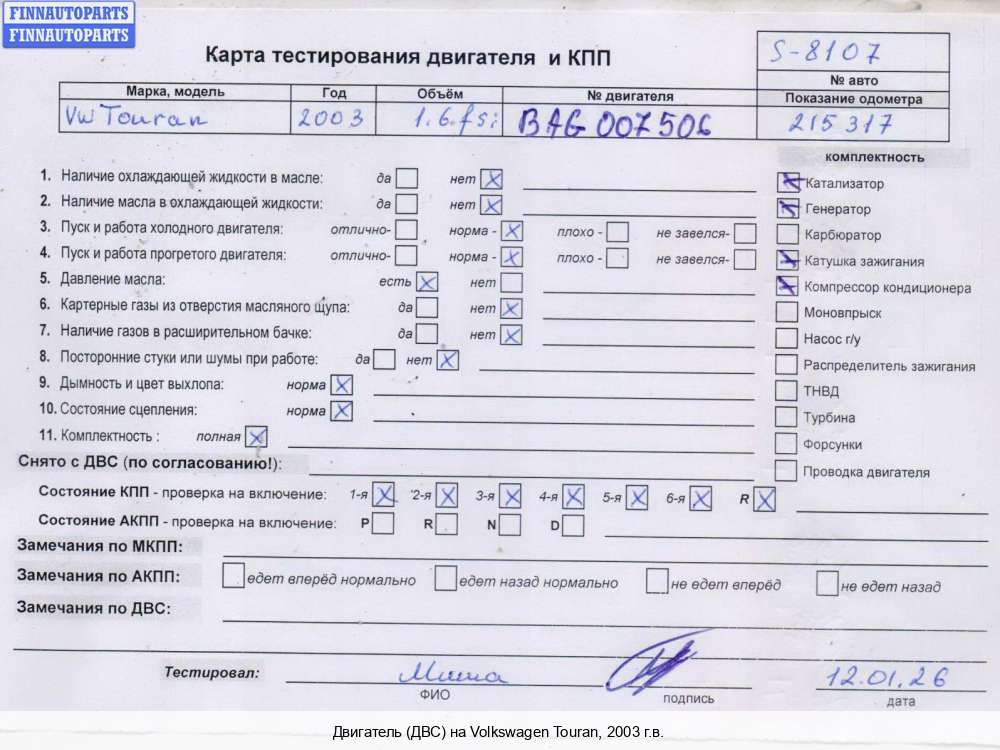 FINNAUTOPARTS
FINNAUTOPARTS
Карта тестирования двигателя и КПП
S-8107
№ авто
Марка, модель Год Объём № двигателя Показание одометра
VW Touran 2003 1.6.fsi BAG 007506 215317
комплектность
1. Наличие охлаждающей жидкости в масле: да нет
Катализатор
2. Наличие масла в охлаждающей жидкости: да нет
Генератор
3. Пуск и работа холодного двигателя: отлично- норма - плохо - не завелся-
Карбюратор
4. Пуск и работа прогретого двигателя: отлично- норма - плохо - не завелся-
Катушка зажигания
5. Давление масла: есть нет
Компрессор кондиционера
6. Картерные газы из отверстия масляного щупа: да нет
Моновпрыск
7. Наличие газов в расширительном бачке: да нет
Насос г/у
8. Посторонние стуки или шумы при работе: да нет
Распределитель зажигания
9. Дымность и цвет выхлопа: норма
ТНВД
10. Состояние сцепления: норма
Турбина
11. Комплектность : полная
Форсунки
Снято с ДВС (по согласованию!):
Проводка двигателя
Состояние КПП - проверка на включение: 1-я 2-я 3-я 4-я 5-я 6-я R
Состояние АКПП - проверка на включение: P R N D
Замечания по МКПП:
Замечания по АКПП: едет вперёд нормально едет назад нормально не едет вперёд не едет назад
Замечания по ДВС:
Тестировал: Миша 12.01.26
ФИО подпись дата
Двигатель (ДВС) на Volkswagen Touran, 2003 г.в.